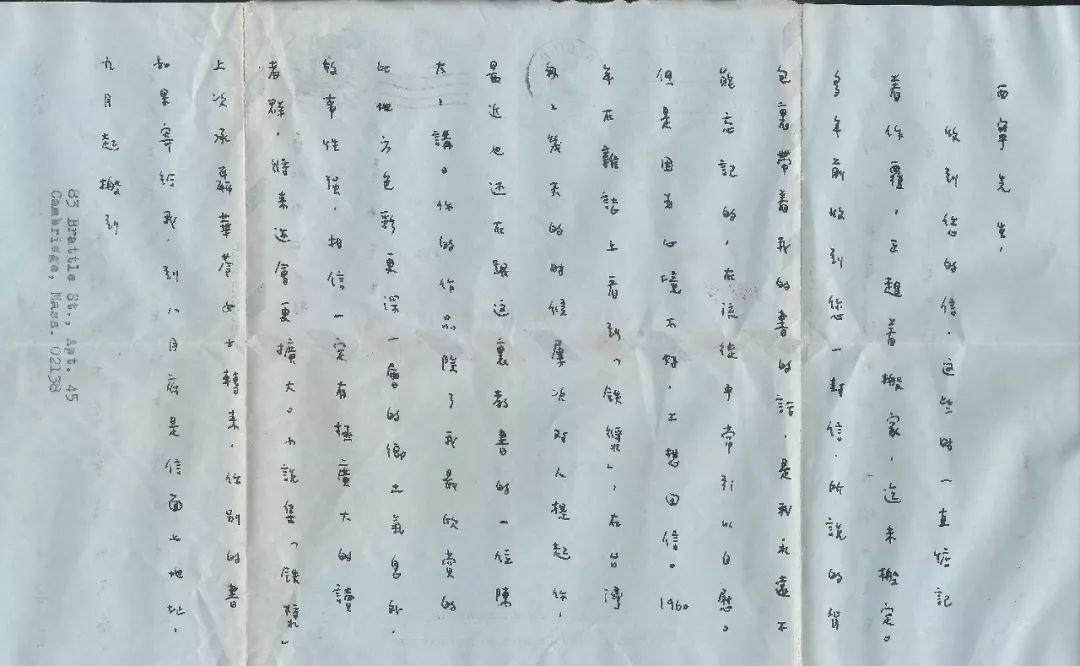 西寧先生,
收到您的信,这些時一直惦記
着作覆,正趕着搬家,迄未搬定。
多年前收到您一封信,所說的背
包裏帶着我的書的話,是我永遠不
能忘記的,在流徙中常引以自慰。
但是因为心境不好,不想回信。1960
年在雜誌上看到「鉄漿」,在台灣
匆匆幾天的時候屢次对人提起你,
最近也还在跟这裏教書的一位陳
太太講。你的作品除了我最欣賞的
比地方色彩更深一層的鄉土氣息外,
故事性强,相信一定有極廣大的讀
者群,将来还會更擴大。小說集「鉄漿」
上次承聶華苓女士轉来,你別的書
如果寄給我,到八月底是信面上地址,
九月起搬到
83 Brattle St., Apt. 45
Cambridge, Mass. 02138